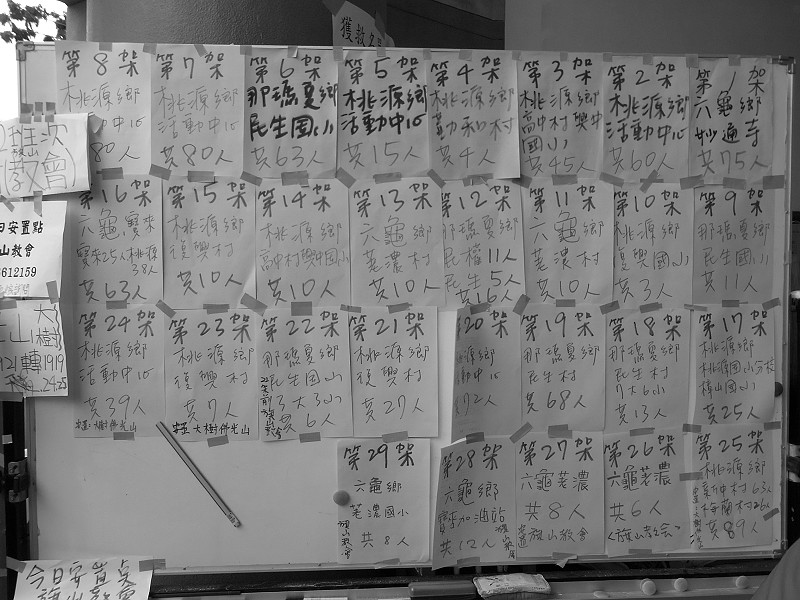 獲救之
第8架
桃源鄉
活動中心
80人
第7架
桃源鄉
活動中心
共80人
第6架
那瑪夏鄉
民生國小
共63人
第5架
桃源鄉
活動中心
共15人
第4架
桃源鄉
勤和村
共4人
第3架
桃源鄉
高中村興中
國小
共45人
第2架
桃源鄉
活動中心
共60人
第1架
六龜鄉
妙通寺
共75人
班次
旗山
教會)
第16架
六龜,寶來
寶來25人桃源
38人
共63人
第15架
桃源鄉
復興村
共10人
第14架
桃源鄉
高中村興中國小
共11人
第13架
六龜鄉
荖濃村
共10人
第12架
那瑪夏鄉
民權11人
民生5人
共16人
第11架
六龜鄉
荖濃村
共10人
第10架
桃源鄉
復興國小
共3人
第9架
那瑪夏鄉
民生國小
共11人
日安置點
山教會
6612159
第24架
桃源鄉
活動中心
共39人
安置:大樹佛光山
第23架
桃源鄉
復興村
共7人
安置大樹佛光山
第22架
那瑪夏鄉
民生國小
3大3小
共6人
第21架
桃源鄉
復興村
共27人
20架
源鄉
動中心
共72人
第19架
那瑪夏鄉
民生村
共68人
第18架
那瑪夏鄉
民生村
7大6小
共13人
第17架
桃源鄉
桃源國小分校
樟山國小
共25人
大
山樹
921轉1919
24-25
第29架
六龜鄉
荖濃國小
共8人
旗山教會
第28架
六龜鄉
寶來加油站
共12人
旗山教會
第27架
六龜荖濃
共8人
安置旗山教會
第26架
六龜荖濃
共6人
<旗山教會>
第25架
桃源鄉
勤和村63人
梅蘭村26人
共89人
今日安置點
旗山教會